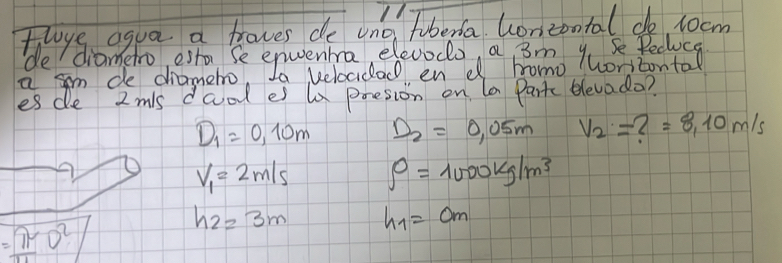 Fluye agua a traves de una tubería horizontal de 10cm
de diametro esta se encuentra elevado a 3m y se reduce
a 5m de diametro, la velocidad en el tramo horizontal
es de 2m/s cual es la presión en la parte elevado?
D₁ = 0,10m D₂ = 0,05m V₂ = ? = 8,10 m/s
V₁ = 2m/s ρ = 1000kg/m³
h₂ = 3m h₁ = 0m
= π D²